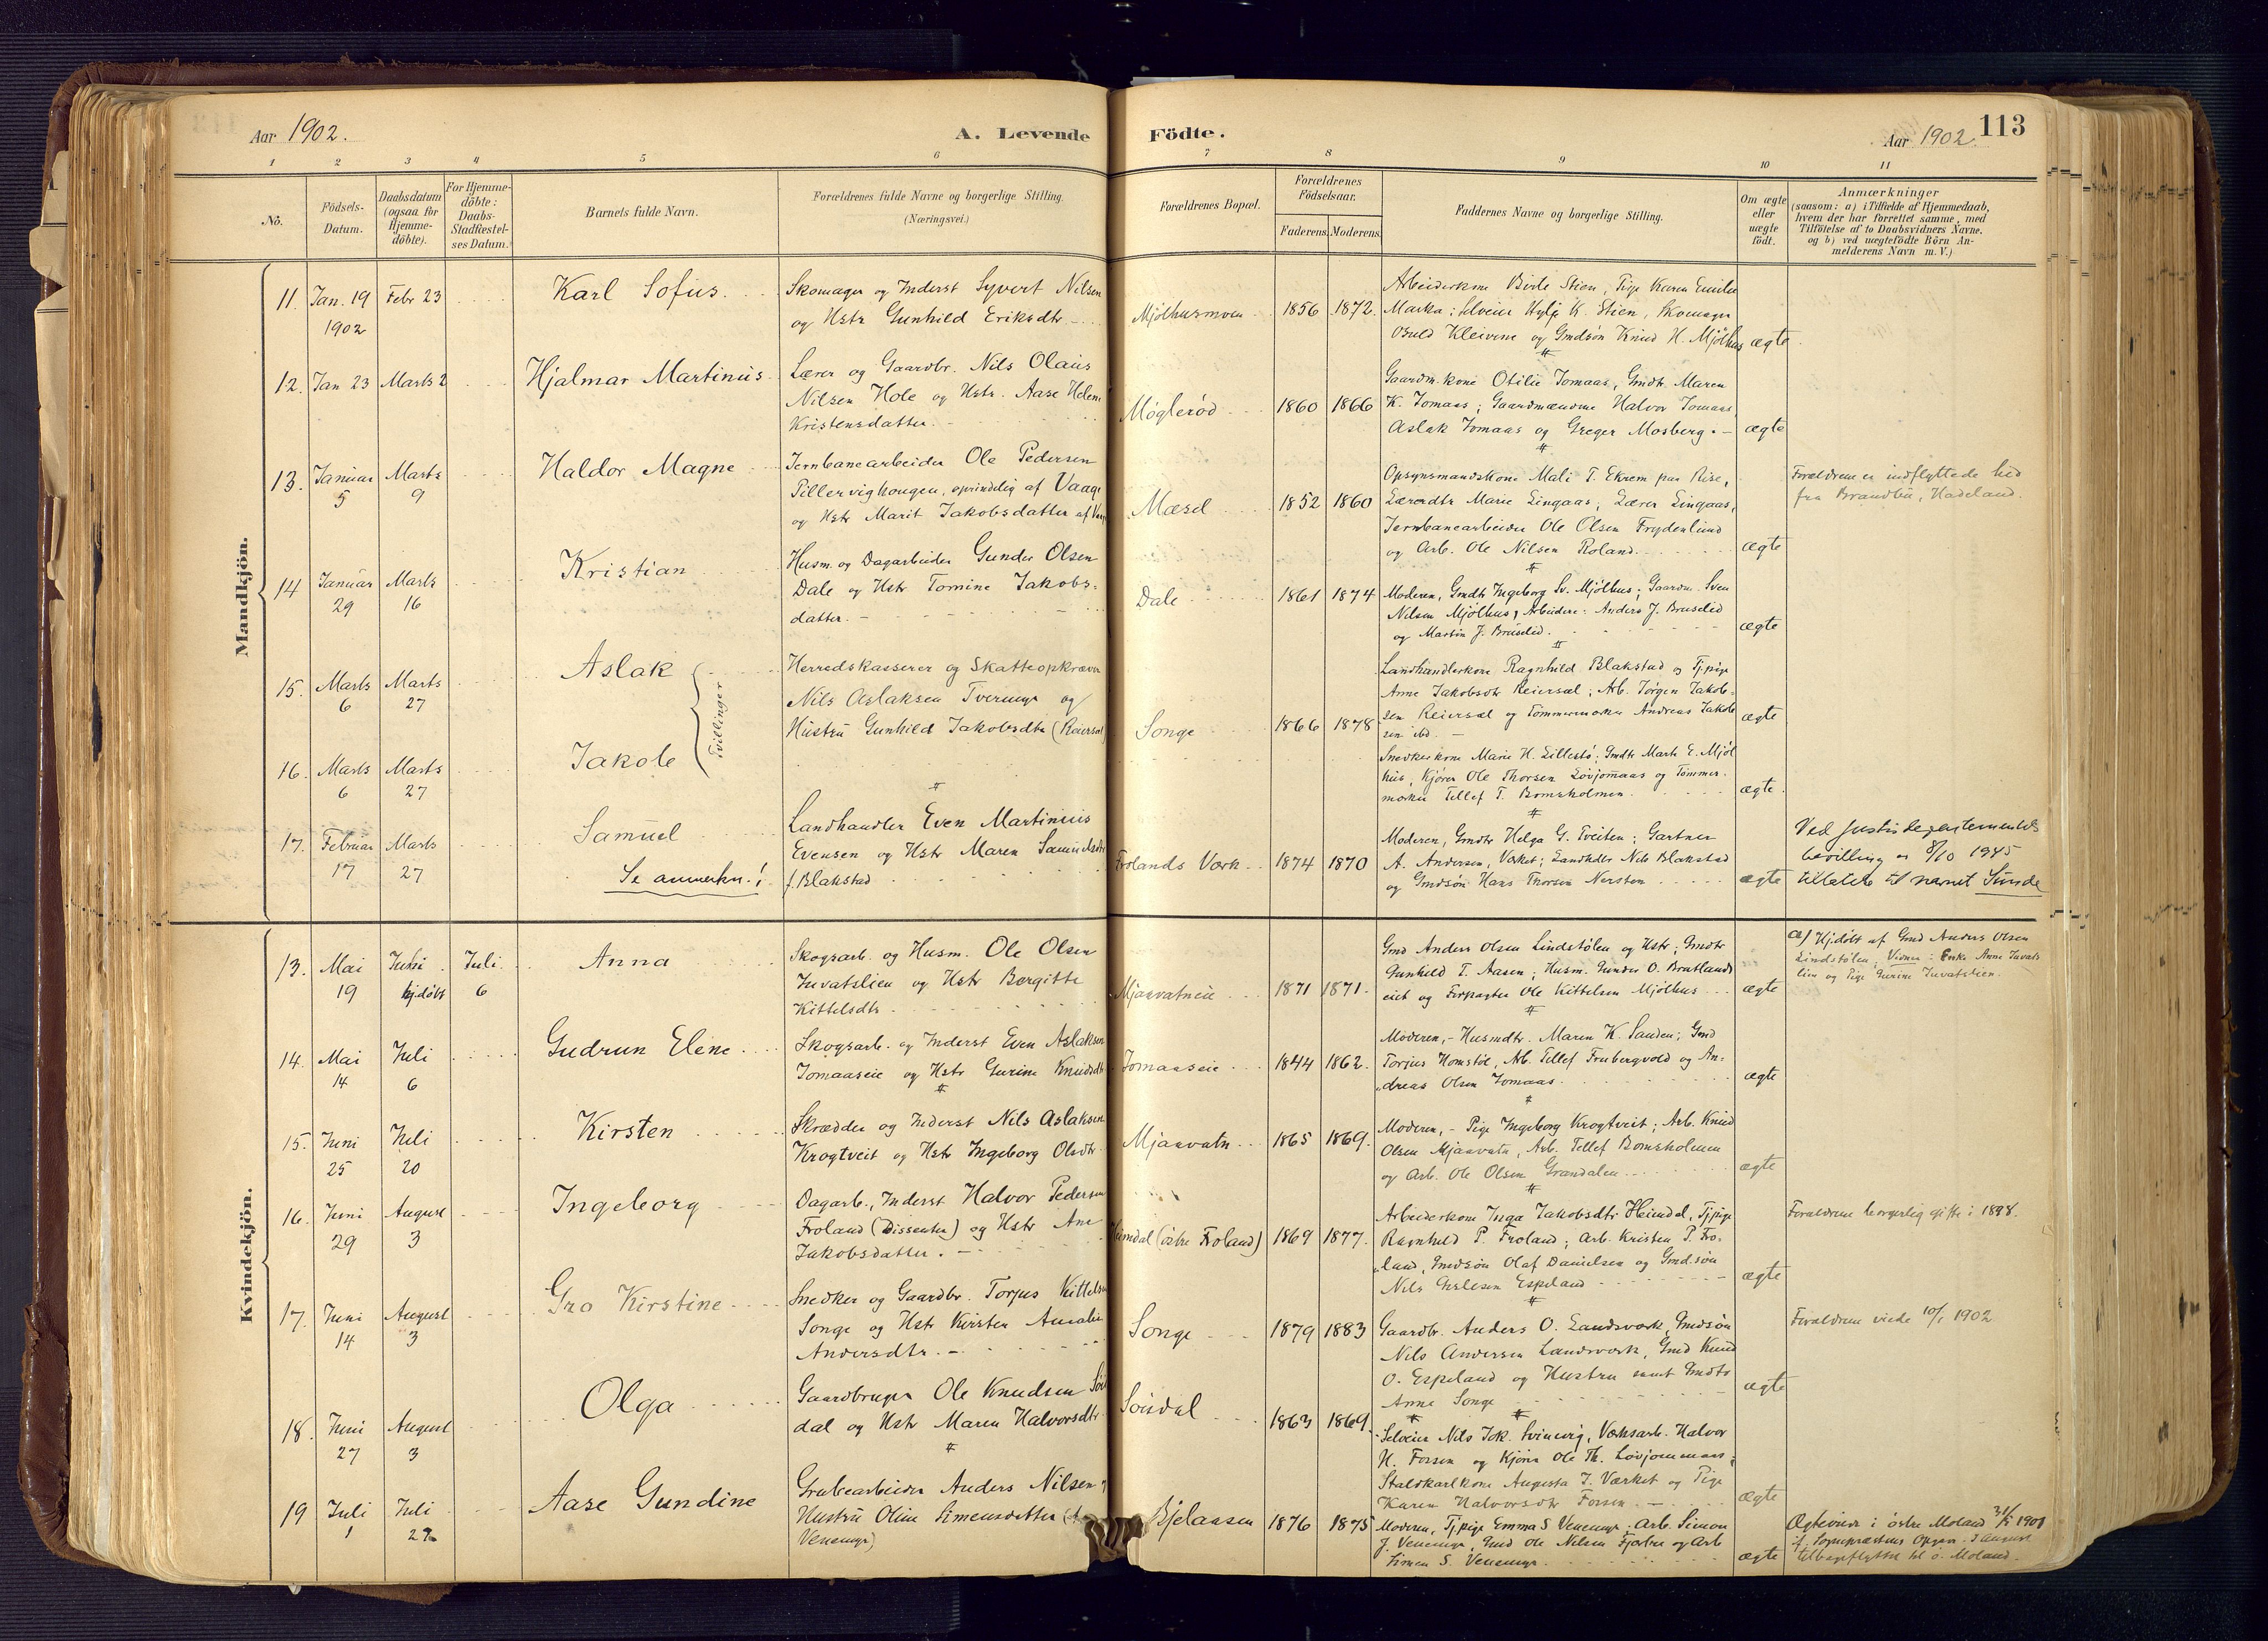 Aar 1902.
A. Levende Födte.
Aar 1902.
113
1 2 3 4 5 6 7 8 9 10 11
Nö.
Födsels-Datum.
Daabsdatum (ogsaa for Hjemme-döbte).
For Hjemme-döbte: Daabs-Stadfæstel-ses Datum.
Barnets fulde Navn.
Forældrenes fulde Navne og borgerlige Stilling. (Næringsvei.)
Forældrenes Bopæl.
Forældrenes Födselsaar.
Faderens. Moderens.
Faddernes Navne og borgerlige Stilling.
Om ægte eller uægte födt.
Anmærkninger
(saasom: a) i Tilfælde af Hjemmedaab,
hvem der har forrettet samme, med
Tilföielse af to Daabsvidners Navne.
og b) ved uægtefödte Börn An-
melderens Navn m. V.)
Mandkjön.
11. Jan. 19 1902 Febr 23 Karl Sofus.
Skomager og Inderst Syvert Nilsen
og Hstr Gunhild Eriksdtr
1856 1872.
Arbeiderkone Stien, Pige Karen Emilie
Marka; Selveier K. Stien, Skomager
Kleivene og Gmdsøn Knud H. Mjölhus
ægte
12. Jan 23 Marts 2 Hjalmar Martinus.
Lærer og Gaardbr. Nils Olaus
Nilsen Hole og Hstr. Aase Helene
Kristensdatter.
Møglerød 1860 1866
Gaardm.kone Otilie Jomaas, Gmdtr. Maren
K. Jomaas; Gaardmændene Halvor Jomaas,
Aslak Jomaas og Greger Mosberg.
ægte
13. Januar 5 Marts 9 Haldor Magne
Jernbanearbeider Ole Pedersen
oprindelig af Vaage
og Hstr Marit Jakobsdatter af
Mæsel 1852 1860
Opsynsmandskone Mali T. Ekrem paa Rise,
Lærerdtr Marie Lingaas; Lærer Lingaas,
Jernbanearbeider Ole Olsen Frydenlund
og Arb. Ole Nilsen Roland.
ægte
Forældrene er indflyttede hid
fra Brandbu, Hadeland.
14 Januar 29 Marts 16 Kristian
Husm. og Dagarbeider Gunder Olsen
Dale og Hstr Tomine Jakobs-
datter.
Dale 1861 1874
Moderen, Gmdtr Ingeborg Sv. Mjölhus; Gaardm. Sven
Nilsen Mjölhus, Arbeidere: Anders J. Bruselid
og Martin J. Bruselid.
ægte
15. Marts 6 Marts 27 Aslak
16. Marts 6 Marts 27 Jakob
Tvillinger
Herredskasserer og Skatteopkræver
Nils Aslaksen og
Hustru Gunhild Jakobsdtr
Songe 1866 1878
Landhandlerkone Ragnhild Blakstad og Tj.pige
Anne Jakobsdtr Reiersøl; Arb. Jørgen Jakob-
sen Reiersøl og Tømmermerker Andreas Jakob
sen ibd.
ægte
Snedkerkone Marie H. Lillestö; Gmdtr Marte E. Mjöl
hus, Kjører Ole Thorsen Løvjomaas og Tømmer-
merker Tellef T. Bomsholmen.
ægte.
17. Februar 17 Marts 27 Samuel
Se anmerkn.!
Landhandler Even Martinius
Evensen og Hstr Maren Samuelsdtr
f. Blakstad
Frolands Værk 1874 1870
Moderen, Gmdtr Helga G. Tveiten; Gartner
A. Andersen, Værket; Landhdlr Nils Blakstad
og Gmdsøn Hans Thorsen Nersten
ægte
Ved Justisdepartementets
bevilling av 8/10 1945
tillatelse til navnet Sunde
Kvindekjön.
13. Mai 19 Juni hjdöbt Juli 6 Anna
Skogsarb. og Husm. Ole Olsen
og Hstr Borgitte
Kittelsdtr
Mjaavatneie 1871 1871.
Gmd Anders Olsen Lindstølen og Hstr; Gmdtr
Gunhild T. Aasen; Husm. Gunder O. Bratlands
eiet og Forpagter Ole Kittelsen Mjölhus
ægte
a) Hjdöbt af Gmd Anders Olsen
Lindstølen; Vidner: Enke Anne
lien og Pige Gurine
14. Mai 14 Juli 6 Gudrun Elene
Skogsarb. og Inderst Even Aslaksen
Jomaaseie og Hstr Gurine Knudsdtr
Jomaaseie 1844 1862.
Moderen, - Husmdtr. Maren K. Sanden; Gmd
Torjus Homstöl, Arb. Tellef og An-
dreas Olsen Jomaas.
ægte
15. Juni 25 Juli 20 Kirsten
Skrædder og Inderst Nils Aslaksen
Krogtveit og Hstr Ingeborg Olsdtr
Mjaavatn 1865 1869.
Moderen, - Pige Ingeborg Krogtveit; Arb. Knud
Olsen Mjaavatn, Arb. Tellef Bomsholmen
og Arb. Ole Olsen Grændalen
ægte
16. Juni 29 August 3 Ingeborg
Dagarb., Inderst Halvor Pedersen
Froland (Dissenter) og Hstr Ane
Jakobsdatter.
Heimdal (østre Froland) 1869 1877.
Arbeiderkone Inga Jakobsdtr Heimdal, Tj.pige
Ragnhild P. Froland; Arb. Kristen P. Fro-
land, Gmdsøn Olaf Danielsen og Gmd.søn
Nils Espeland
ægte
Forældrene borgerlig gifte i 1898.
17. Juni 14 August 3 Gro Kirstine
Snedker og Gaardbr. Torjus Kittelsen
Songe og Hstr Kirsten Amalie
Andersdtr.
Songe 1879 1883
Gaardbr. Anders O. Landsværk, Gmdsøn
Nils Andersen Landsværk, Gmd Knud
O. Espeland og Hustru samt Gmdtr
Anne Songe
ægte
Forældrene viede 10/1 1902
18. Juni 27 August 3 Olga
Gaardbruger Ole Knudsen Søis
dal og Hstr Maren Halvorsdtr
Søisdal 1863 1869.
Selveier Nils Jak. Svinevig, Værksarb. Halvor
H. Forsen og Kjører Ole Th. Løvjommaas;
Staldkarlkone Augusta J. Værket og Pige
Karen Halvorsdtr Forsen.
ægte
19 Juli 1 Juli 27 Aase Gundine
Grubearbeider Anders Nilsen
Hustru Oline Simensdatter
Venemyr)
Bjelaasen 1876 1875
Moderen, Tj.pige Emma S Venemyr; Arb. Simon
J. Venemyr, Gmd Ole Nilsen og Arb
Simen S. Venemyr
ægte
Ægteviede i østre Moland 1901
tilbageflyttet til ø. Moland.